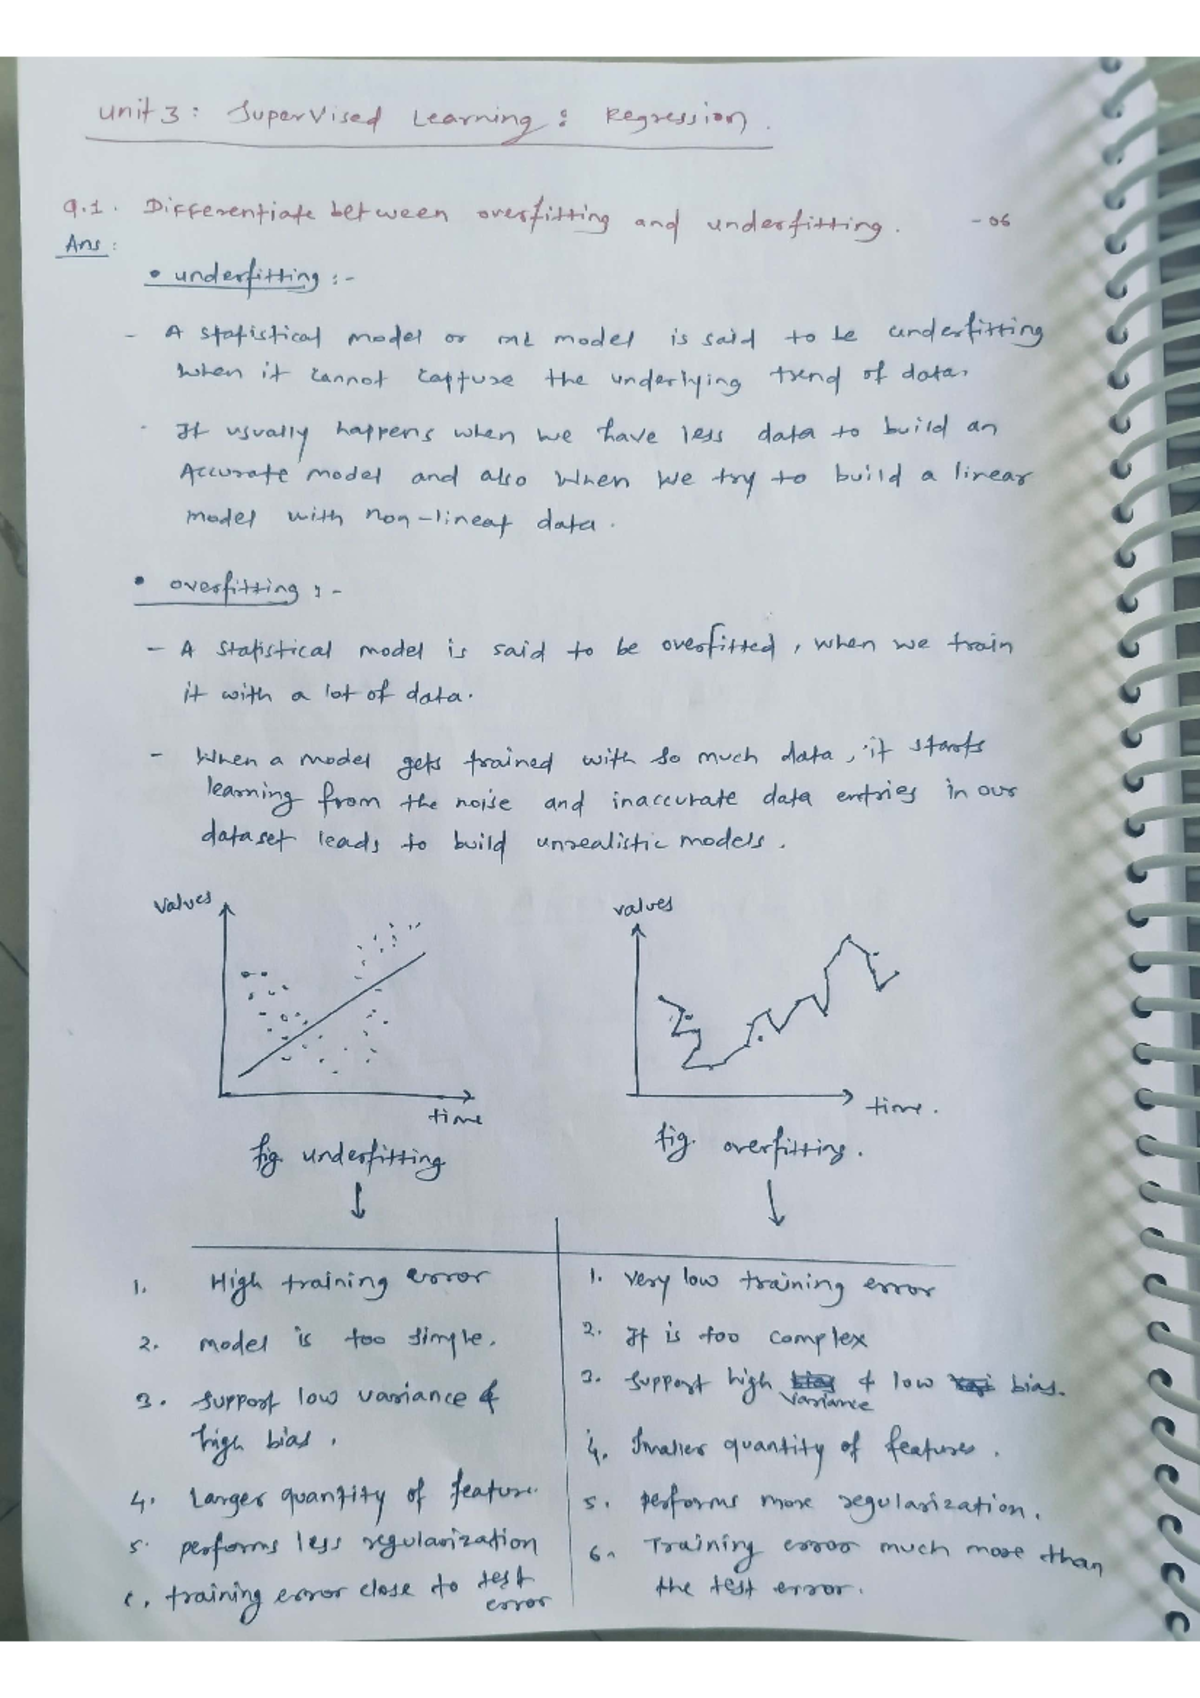 Unit 3: Supervised Learning: Regression.
Q.1. Differentiate between overfitting and underfitting. - 06
Ans:
• underfitting :-
- A statistical model or ML model is said to be underfitting
when it cannot capture the underlying trend of data.
- It usually happens when we have less data to build an
Accurate model and also when we try to build a linear
model with non-linear data.
• overfitting :-
- A statistical model is said to be overfitted, when we train
it with a lot of data.
- When a model gets trained with so much data, it starts
learning from the noise and inaccurate data entries in our
dataset leads to build unrealistic models.
values
time
fig. underfitting
values
time.
fig. overfitting.
1. High training error
2. model is too simple.
3. support low variance &
high bias.
4. Larger quantity of feature.
5. performs less regularization
6. training error close to test
error
1. Very low training error
2. It is too complex
3. support high variance & low bias.
4. Smaller quantity of features.
5. performs more regularization.
6. Training error much more than
the test error.